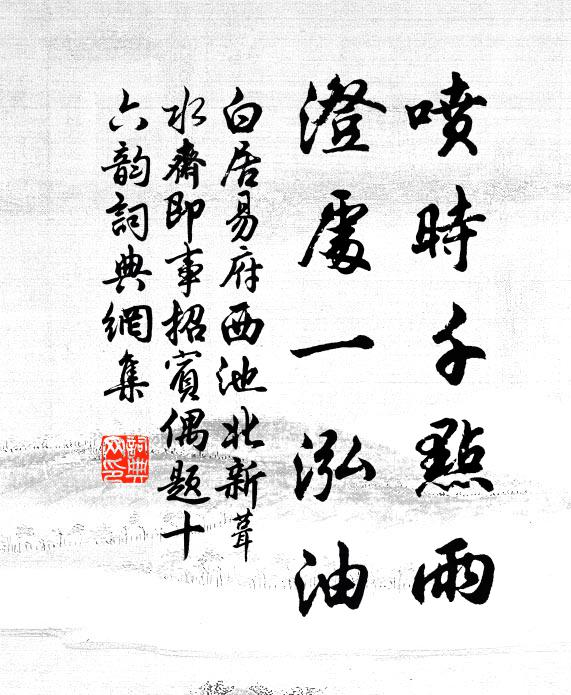 噴時千點雨
澄處一泓油
白居易府西池北新葺
水齋即事招賓偶題十
六韵詞典網集
詞典
网印